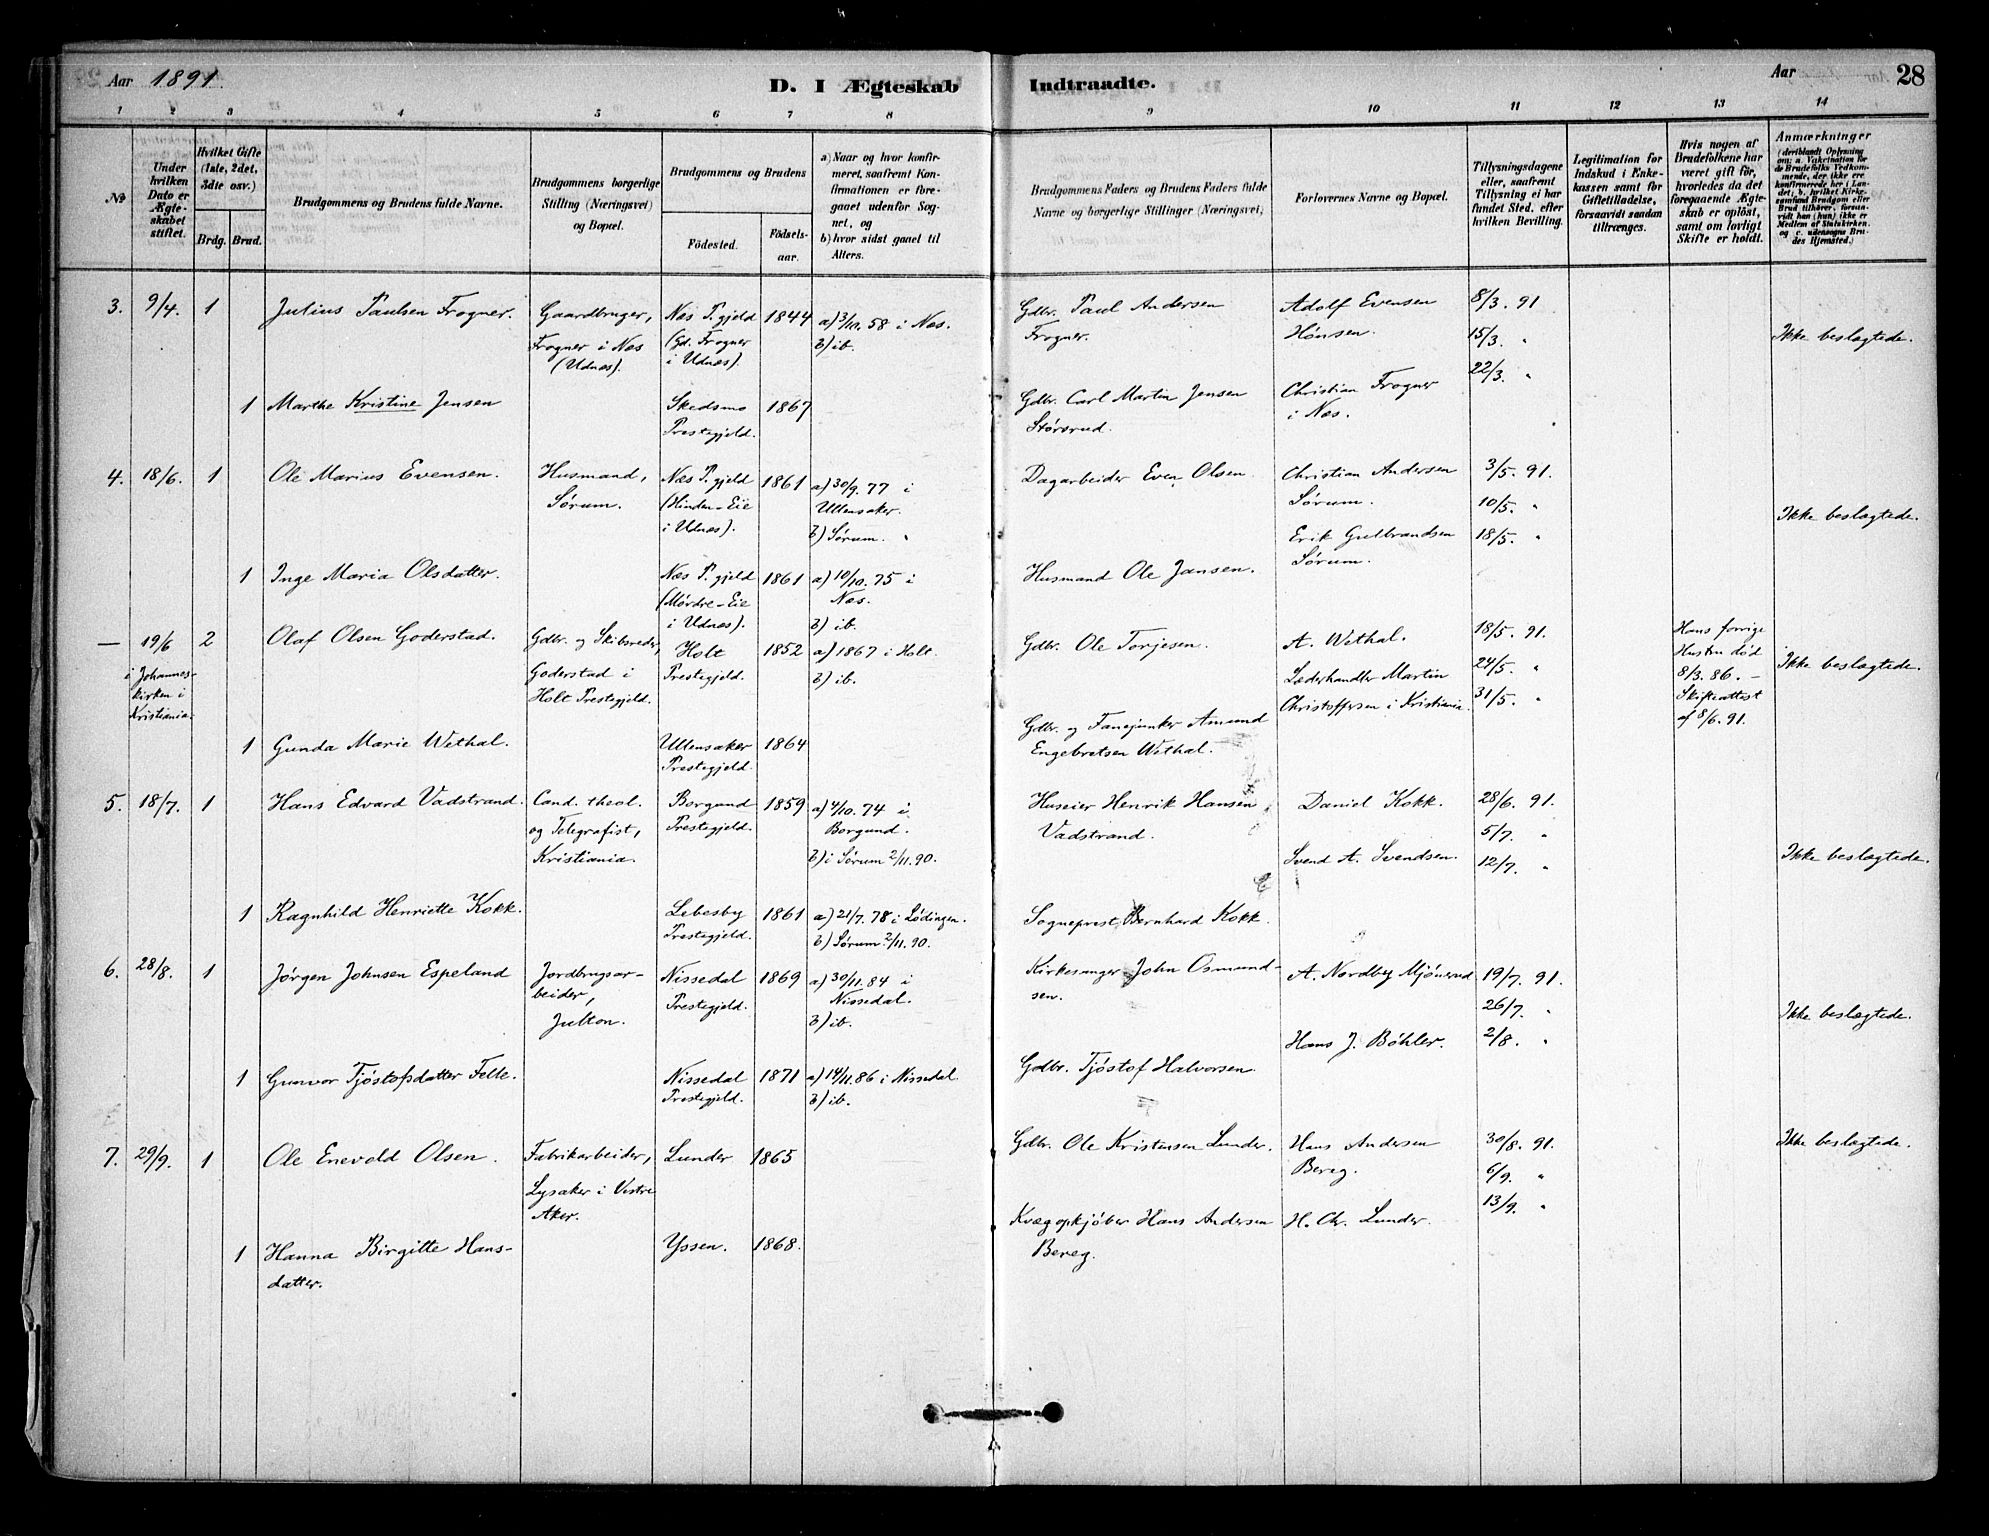 Aar 1891
D. I Ægteskab Indtraadte.
Aar
28
1 2 3 4 5 6 7 8 9 10 11 12 13 14
No
Under hvilken Dato er Ægteskabet stiftet.
Hvilket Gifte (1ste, 2det, 3dte osv.)
Brdg. Brud.
Brudgommens og Brudens fulde Navne.
Brudgommens borgerlige Stilling (Næringsvei) og Bopæl.
Brudgommens og Brudens
Födested.
Födsels-aar.
a) Naar og hvor konfirmeret, saafremt Konfirmationen er foregaaet udenför Sognet, og
b) hvor sidst gaaet til Alters.
Brudgommens Faders og Brudens Faders fulde Navne og borgerlige Stillinger (Næringsvei)
Forlovernes Navne og Bopæl.
Tillysningsdagene eller, saafremt Tillysning ei har fundet Sted, efter hvilken Bevilling.
Legitimation for Indskud i Enkekassen samt for Giftetilladelse, forsaavidt saadan tiltrænges.
Hvis nogen af Brudefolkene har været gift för, hvorledes da det foregaaende Ægteskab er oplöst, samt om lovligt Skifte er holdt.
Anmærkninger
(deriblandt Oplysning om: a. Vakcination for de Brudefolks Vedkommende, der ikke ere konfirmerede her i Landet; b. hvilket Kirkesamfund Brudgom eller Brud tilhörer, forsaavidt han (hun) ikke er Medlem af Statskirken, og c. udensogns Brudes Hjemsted.)
3. 9/4. 1 Julius Paulsen Frogner. Gaardbruger, Næs P.gjeld 1844 a) 3/10. 58 i Næs.
Frogner i Næs (Gd. Frogner b) ib.
(Udnæs). i Udnæs).
Gdbr. Paul Andersen Adolf Evensen 8/3. 91.
Frogner. Hønsen. 15/3. "
Ikke beslægtede.
22/3. "
1 Marthe Kristine Jensen Skedsmo 1867
Prestegjeld.
Gdbr. Carl Martin Jensen Christian Frogner
Størsrud. i Næs.
4. 18/6. 1 Ole Marius Evensen. Husmand, Næs P.gjeld 1861 a) 30/9. 77 i
Sørum. (Hinden-Eie Ullensaker.
i Udnæs). b) Sørum. "
Dagarbeider Even Olsen. Christian Andersen 3/5. 91.
Sørum. 10/5. "
Ikke beslægtede.
Erik Gulbrandsen 18/5. "
Sørum.
1 Inge Maria Olsdatter. Næs P.gjeld 1861 a) 10/10. 75 i
(Mørdre-Eie Næs.
i Udnæs). b) ib.
Husmand Ole Jansen.
— 19/6 2 Olaf Olsen Goderstad. Gdbr. og Skibsreder, Holt 1852 a) 1867 i Holt.
i Johannes- Goderstad i Prestegjeld. b) ib.
kirken i Holt Prestegjeld.
Kristiania.
Gdbr. Ole Torjesen. A. Wethal. 18/5. 91.
Læderhandler Martin 24/5. "
Christoffersen i Kristiania. 31/5. "
Hans forrige
Hustru død
8/3. 86. –
Skifteattest
af 8/6. 91.
Ikke beslægtede.
1 Gunda Marie Wethal. Ullensaker 1864
Prestegjeld.
Gdbr. og Fanejunker Amund
Engebretsen Wethal.
5. 18/7. 1 Hans Edvard Vadstrand. Cand. theol. Borgund 1859 a) 4/10. 74 i
og Telegrafist, Prestegjeld. Borgund.
Kristiania. b) i Sørum 2/11. 90.
Huseier Henrik Hansen Daniel Kokk. 28/6. 91.
Vadstrand. 5/7. "
Svend A. Svendsen. 12/7. "
Ikke beslægtede.
1 Ragnhild Henriette Kokk. Lebesby 1861 a) 21/7. 78 i Lødingen.
Prestegjeld. b) Sørum 2/11. 90.
Sogneprest Bernhard Kokk.
6. 28/8. 1 Jørgen Johnsen Espeland Jordbrugsar- Nissedal 1869 a) 30/11. 84 i
beider, Prestegjeld. Nissedal.
Julton. b) ib.
Kirkesanger John Osmund- A. Nordby Mjønerud 19/7. 91.
sen. 26/7. "
Ikke beslægtede.
Hans J. Bøhler. 2/8. "
1 Gunvor Tjøstofsdatter Felle. Nissedal 1871 a) 14/11. 86 i Nissedal.
Prestegjeld. b) ib.
Gdbr. Tjøstof Halvorsen.
7. 29/9. 1 Ole Enevold Olsen. Fabrikarbeider, Lunder 1865
Lysaker i Vestre
Aker.
Gdbr. Ole Kristensen Lunder. Hans Andersen 30/8. 91.
Bereg. 6/9. "
Ikke beslægtede.
13/9. "
1 Hanna Birgitte Hans- Yssen. 1868.
datter.
Kvægopkjøber Hans Andersen H. Chr. Lunder.
Bereg.